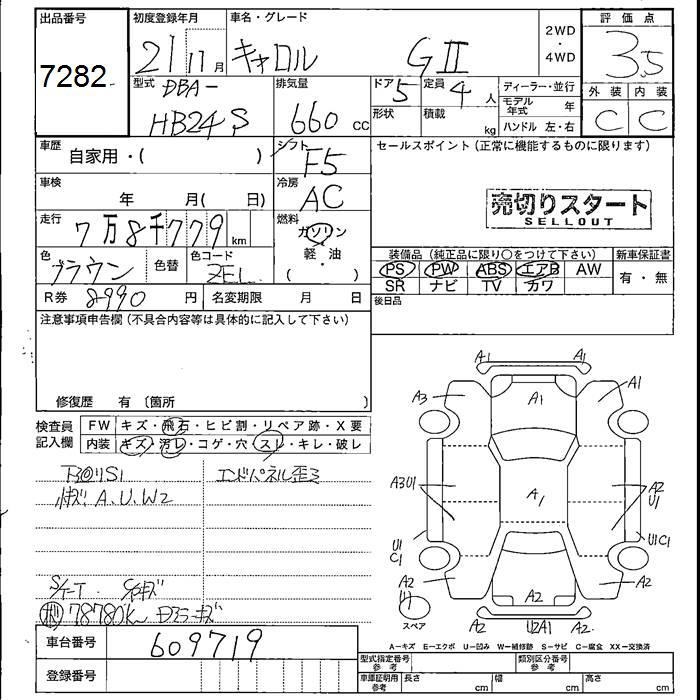 出品番号
7282
初度登録年月
21 11月
車名・グレード
キャロル GⅡ
2WD
・
4WD
評価点
3.5
外装 内装
C C
型式
DBA-
HB24S
排気量
660 cc
ドア 5
定員 4 人
形状
積載 kg
ディーラー・並行
モデル年式 年
ハンドル 左・右
車歴
自家用・( )
シフト
F5
セールスポイント(正常に機能するものに限ります)
売切りスタート
SELLOUT
車検
年 月( 日)
冷房
AC
走行
7万8千779 km
燃料
ガソリン
軽・油
( )
色
ブラウン
色替
色コード
ZEL
装備品(純正品に限り○をつけて下さい)
PS PW ABS エアB AW
SR ナビ TV カワ
新車保証書
有・無
R券 8990 円
名変期限 月 日
後日品
注意事項申告欄(不具合内容等は具体的に記入して下さい)
修復歴 有〔箇所 〕
検査員記入欄
FW キズ・飛石・ヒビ割・リペア跡・X要
内装 キズ・汚レ・コゲ・穴・スレ・キレ・破レ
エンドパネル歪ミ
A.U.W2
78780K
車台番号
609719
登録番号
A1 A1
A3 A1 A1
A3U1 A1 A2
U1
U1
C1
U1C1
A2
U1
A2 A2
スペア
A2 U2A1 A2
A−キズ E−エクボ U−凹み W−補修跡 S−サビ C−腐食 XX−交換済
型式指定番号
参考
類別区分番号
参考
車庫証明用
参考
長さ cm
幅 cm
高さ cm